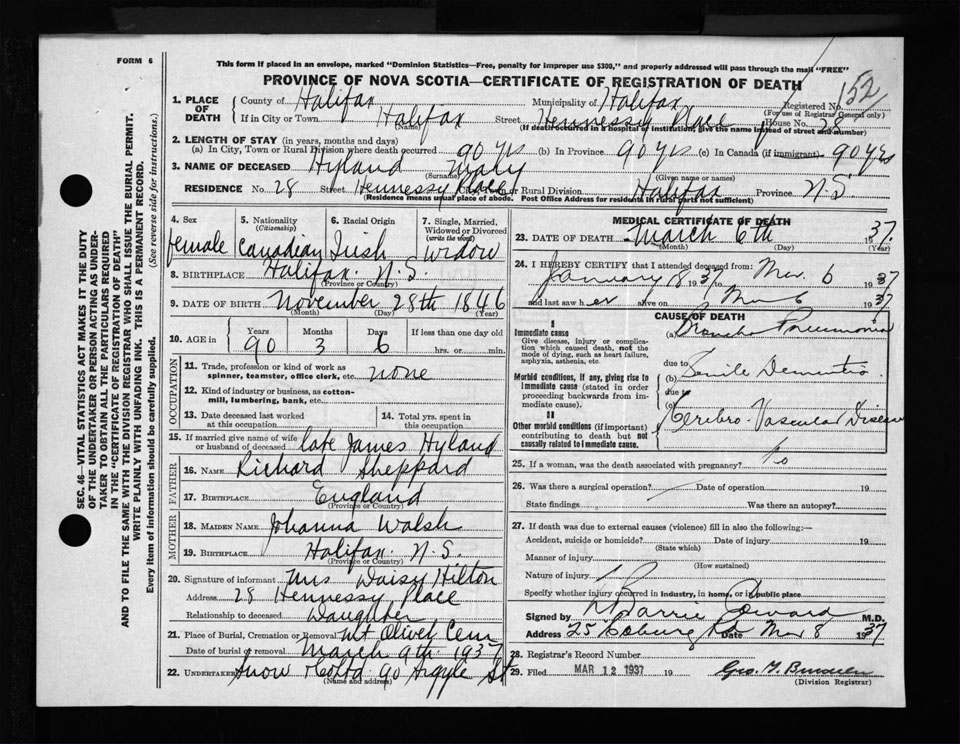 FORM 6
This form if placed in an envelope, marked "Dominion Statistics—Free, penalty for improper use $300," and properly addressed will pass through the mail "FREE"
PROVINCE OF NOVA SCOTIA—CERTIFICATE OF REGISTRATION OF DEATH
152
1. PLACE OF DEATH County of Halifax Municipality of Halifax Registered No.
(For use of Registrar General only)
If in City or Town Halifax Street Hennessy Place House No. 28
(Name) (If death occurred in a hospital or institution, give the name instead of street and number)
2. LENGTH OF STAY (in years, months and days)
(a) In City, Town or Rural Division where death occurred 90 yrs (b) In Province 90 yrs (c) In Canada (if immigrant) 90 yrs
3. NAME OF DECEASED Hyland Mary
(Surname) (Given name or names)
RESIDENCE No. 28 Street Hennessy Place City, Town or Rural Division Halifax Province N.S.
(Residence means usual place of abode. Post Office Address for residents in rural parts not sufficient)
4. Sex female
5. Nationality (Citizenship) Canadian
6. Racial Origin Irish
7. Single, Married, Widowed or Divorced (write the word) Widow
8. BIRTHPLACE Halifax. N.S.
(Province or Country)
9. DATE OF BIRTH November 28th 1846
(Month) (Day) (Year)
10. AGE in Years 90 Months 3 Days 6 If less than one day old hrs. or min.
OCCUPATION
11. Trade, profession or kind of work as spinner, teamster, office clerk, etc. none
12. Kind of industry or business, as cotton-mill, lumbering, bank, etc.
13. Date deceased last worked at this occupation
14. Total yrs. spent in this occupation
15. If married give name of wife or husband of deceased late James Hyland
FATHER
16. NAME Richard Sheppard
17. BIRTHPLACE England
(Province or Country)
MOTHER
18. MAIDEN NAME Johanna Walsh
19. BIRTHPLACE Halifax. N.S.
(Province or Country)
20. Signature of informant Mrs Daisy Hilton
Address 28 Hennessy Place
Relationship to deceased Daughter
21. Place of Burial, Cremation or Removal Mt Olivet Cem
Date of burial or removal March 9th 1937
22. UNDERTAKER Snow & Co Ltd 90 Argyle St
(Name and address)
MEDICAL CERTIFICATE OF DEATH
23. DATE OF DEATH March 6th 1937
(Month) (Day) (Year)
24. I HEREBY CERTIFY that I attended deceased from:
January 18 1937 to Mar 6 1937
and last saw her alive on Mar 6 1937
CAUSE OF DEATH
I
Immediate cause
Give disease, injury or complication which caused death, not the mode of dying, such as heart failure, asphyxia, asthenia, etc.
(a) Broncho Pneumonia
due to
Morbid conditions, if any, giving rise to immediate cause (stated in order proceeding backwards from immediate cause).
(b) Senile Dementia
due to
(c)
II
Other morbid conditions (if important) contributing to death but not causally related to immediate cause.
Cerebro-Vascular Disease
25. If a woman, was the death associated with pregnancy? No
26. Was there a surgical operation? Date of operation 19
State findings Was there an autopsy?
27. If death was due to external causes (violence) fill in also the following:—
Accident, suicide or homicide? Date of injury 19
(State which)
Manner of injury
(How sustained)
Nature of injury
Specify whether injury occurred in industry, in home, or in public place
Signed by M.D.
Address 25 Coburg Rd Date Mar 8 1937
28. Registrar's Record Number
29. Filed MAR 12 1937 19 Geo. T.
(Division Registrar)
SEC. 46—VITAL STATISTICS ACT MAKES IT THE DUTY
OF THE UNDERTAKER OR PERSON ACTING AS UNDER-
TAKER TO OBTAIN ALL THE PARTICULARS REQUIRED
IN THE "CERTIFICATE OF REGISTRATION OF DEATH"
AND TO FILE THE SAME WITH THE DIVISION REGISTRAR WHO SHALL ISSUE THE BURIAL PERMIT.
WRITE PLAINLY WITH UNFADING INK. THIS IS A PERMANENT RECORD.
Every item of information should be carefully supplied. (See reverse side for instructions.)